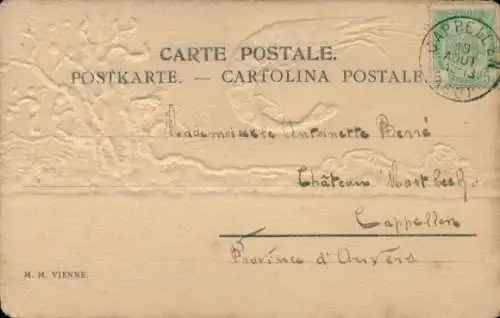 CARTE POSTALE.
POSTKARTE. — CARTOLINA POSTALE.
CAPPELLEN
19
AOUT
5
Mademoiselle Antoinette Berré
Château Mastbosch
Cappellen
Province d'Anvers
M. M. VIENNE.